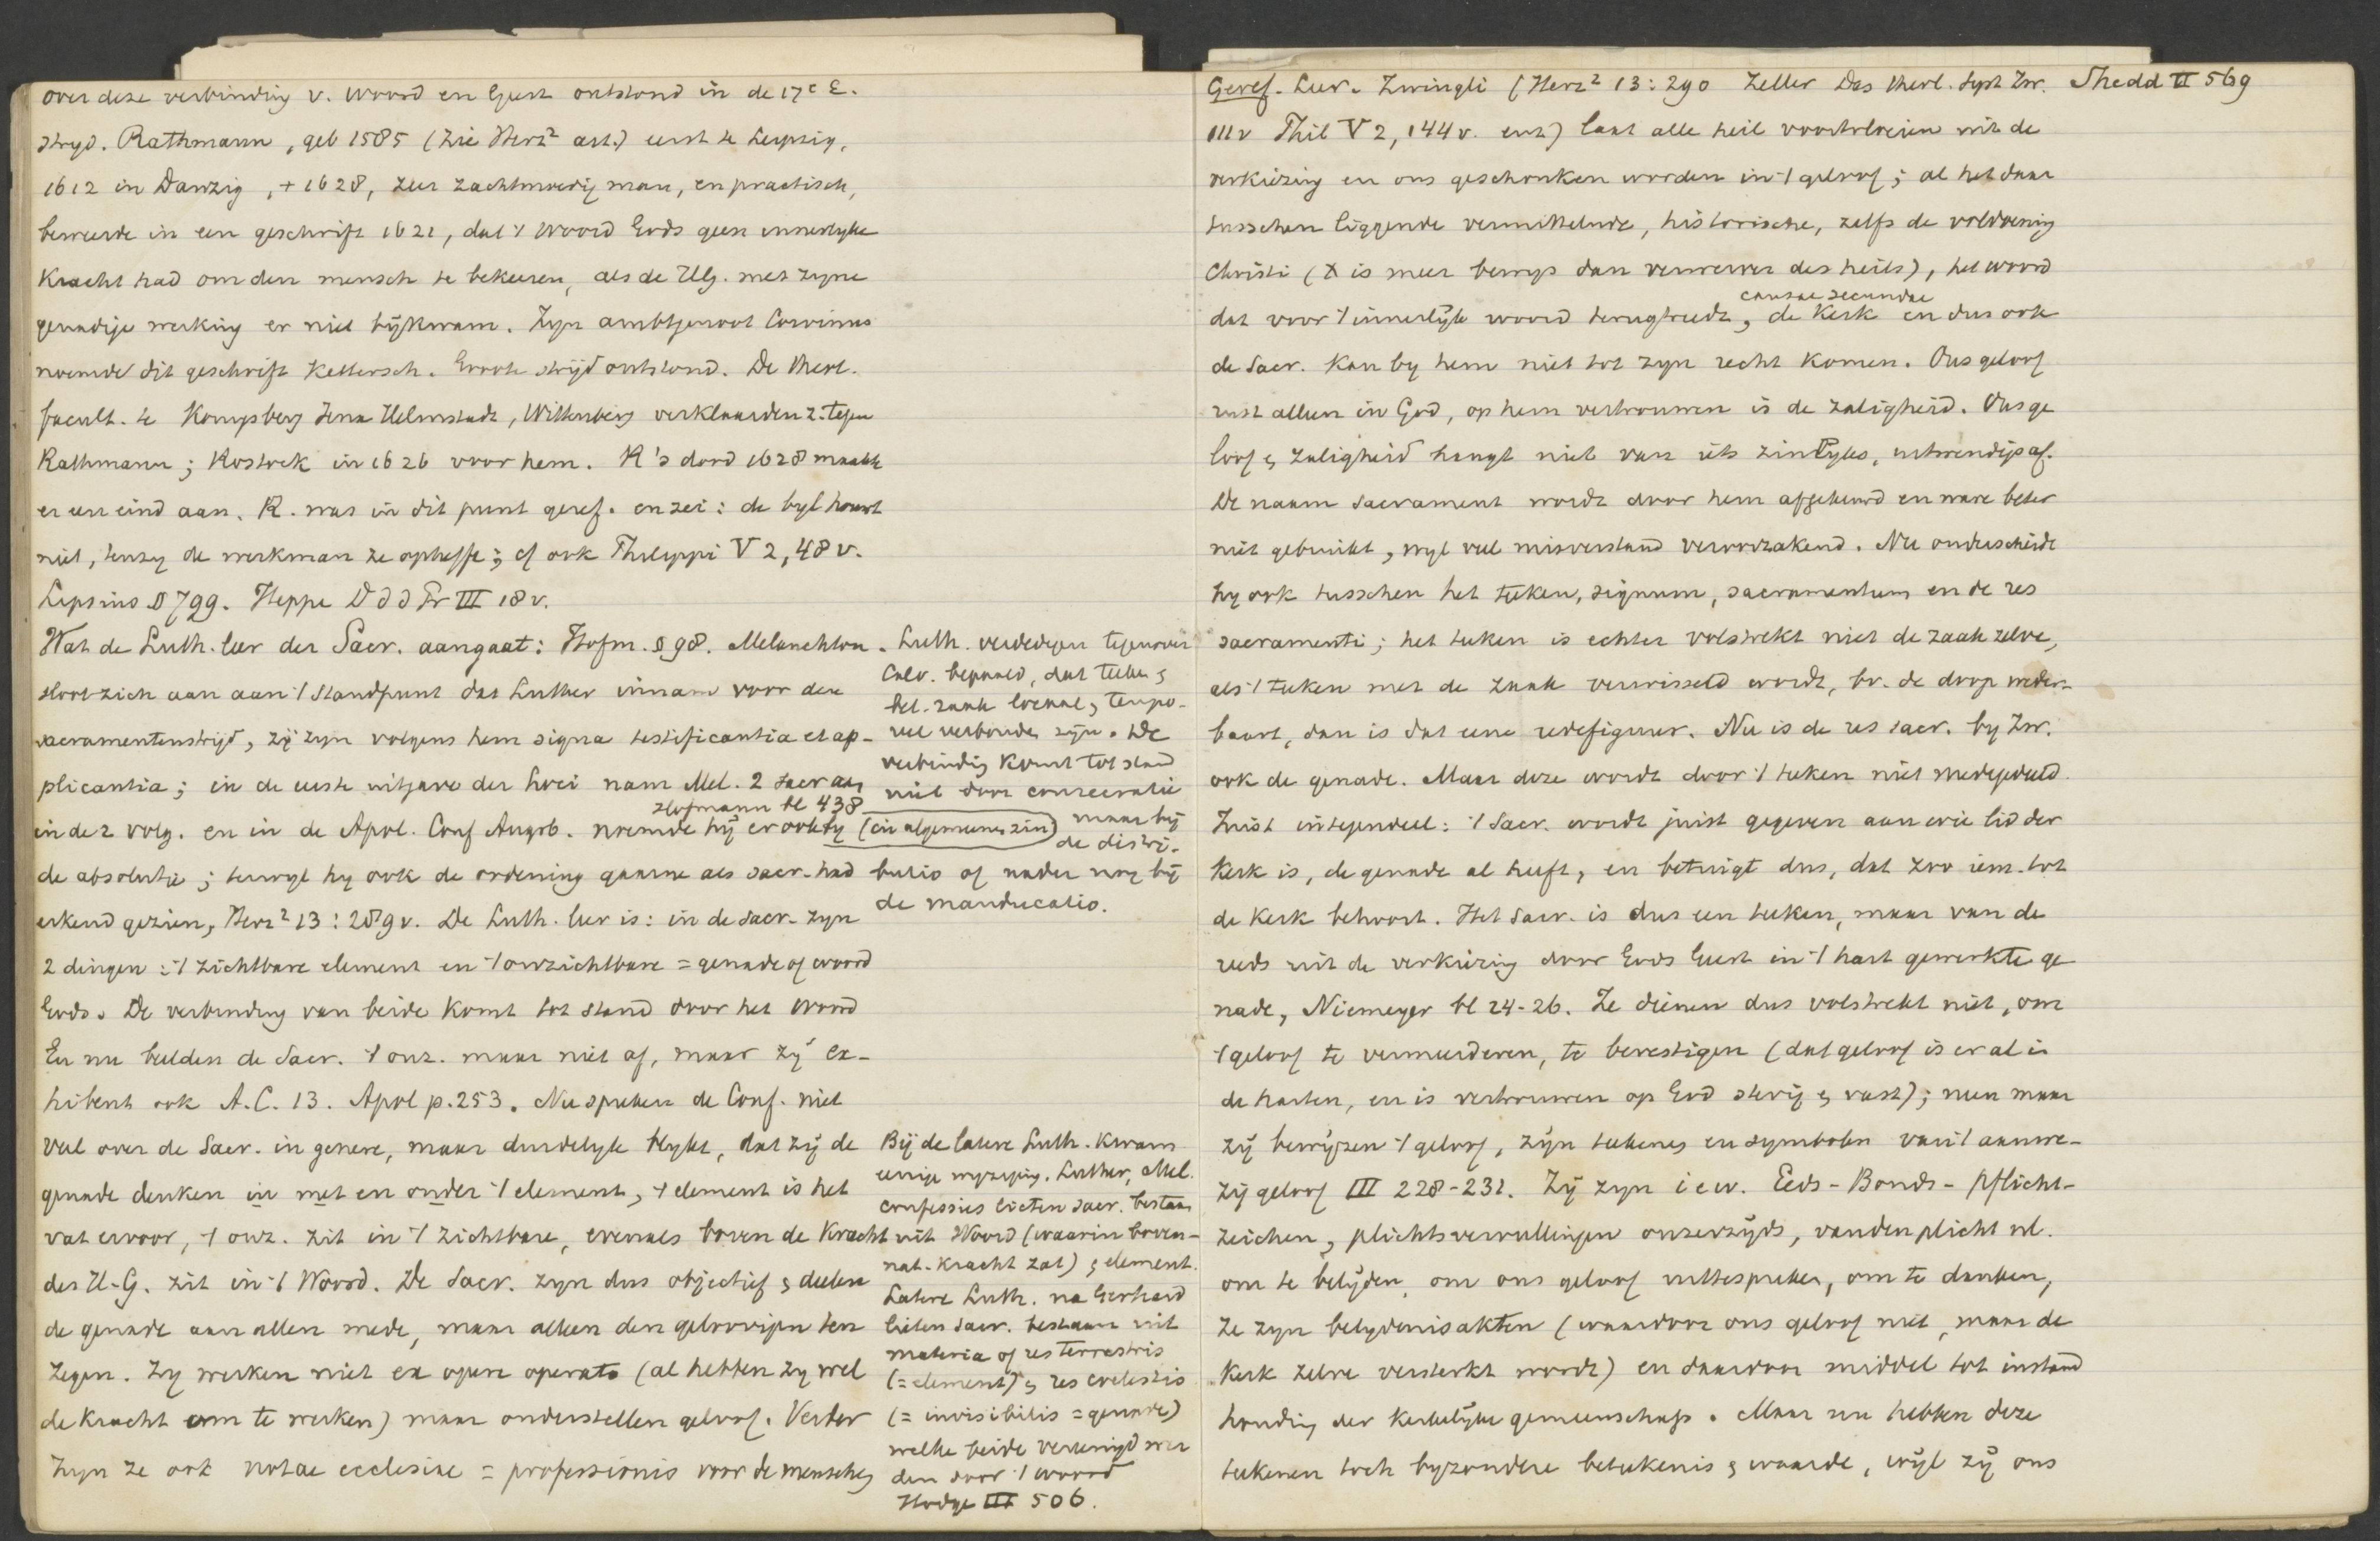 over deze verbinding v. Woord en Geest ontstond in de 17e E.
stryd. Rathmann, geb 1585 (Zie Herz² art.) eerst te Leipzig,
1612 in Danzig, + 1628, zeer zachtmoedig man, en practisch,
beweerde in een geschrift 1621, dat 't Woord Gods geen innerlyke
Kracht had om den mensch te bekeeren, als de H.G. met zyne
genadige werking er niet bijkwam. Zyn ambtgenoot Corvinus
noemde dit geschrift Kettersch. Groote strijd ontstond. De theol.
facult. te Konigsberg Jena Helmstadt, Wittenberg verklaarden z. tegen
Rathmann; Rostock in 1626 voor hem. R's dood 1628 maakte
er een eind aan. R. was in dit punt geref. en zei: de byl houwt
niet, tenzy de werkman ze opheffe; cf ook Philippi V 2, 48 v.
Lipsius § 799. Heppe D d d Pr III 18 v.
Wat de Luth. leer der Sacr. aangaat: Hofm. § 98. Melanchton
sloot zich aan aan 't standpunt dat Luther innam voor den
sacramentenstrijd, zij zyn volgens hem signa testificantia et ap-
plicantia; in de eerste uitgave der Loci nam Mel. 2 sacr aan
Hofmann bl 438
in de 2 volg. en in de Apol. Conf Augsb. noemde hij er ook by (in algemeenen zin)
de absolutie; terwyl hy ook de ordening gaarne als sacr. had
erkend gezien, Herz² 13: 289 v. De Luth. leer is: in de sacr. zyn
2 dingen: 't zichtbare element en 't onzichtbare = genade of woord
Gods. De verbinding van beide komt tot stand door het Woord
En nu beelden de Sacr. 't onz. maar niet af, maar zij ex-
hibent ook A.C. 13. Apol p. 253. Nu spreken de Conf. niet
veel over de Sacr. in genere, maar duidelyk blykt, dat zij de
genade denken in met en onder 't element, 't element is het
vat ervoor, 't onz. zit in 't zichtbare, evenals boven de Kracht
des H.G. zit in 't Woord. De Sacr. zyn dus objectief & deelen
de genade aan allen mede, maar alleen den geloovigen ten
zegen. Zy werken niet ex opere operato (al hebben zy wel
de kracht om te werken) maar onderstellen geloof. Verder
zyn ze ook notae ecclesiae = professionis voor de menschen
. Luth. verdedigen tegenover
Calv. bepaald, dat teeken &
bet. zaak locaal & tempo-
reel verbonden zijn. De
verbinding komt tot stand
niet door consecratie
maar bij
de distri-
butio of nader nog bij
de manducatio.
Bij de latere Luth. kwam
eenige wyziging. Luther, Mel.
confessies lieten sacr. bestaan
uit Woord (waarin boven-
nat. kracht zat) & element.
Latere Luth. na Gerhard
lieten sacr. bestaan uit
materia of res terrestris
(= element) & res coelestis
(= invisibilis = genade)
welke beide vereenigd wer
den door 't woord
Hodge III 506.
Geref. Leer. Zwingli (Herz² 13: 290 Zeller Das theol. Syst Zw. Shedd II 569
111 v Thil V 2, 144 v. enz) laat alle heil voortvloeien uit de
verkiezing en ons geschonken worden in 't geloof; al het daar
tusschen liggende vermittelende, historische, zelfs de voldoening
Christi (X is meer bewys dan verwerver des heils), het woord
causae secundae
dat voor 't innerlijk woord terugtreedt, de Kerk en dus ook
de Sacr. kan by hem niet tot zyn recht komen. Ons geloof
rust alleen in God, op hem vertrouwen is de zaligheid. Ons ge
loof & zaligheid hangt niet van iets zinlyks, uitwendigs af.
De naam sacrament wordt door hem afgekeurd en ware beter
niet gebruikt, wyl veel misverstand veroorzakend. Nu onderscheidt
hy ook tusschen het teeken, signum, sacramentum en de res
sacramenti; het teeken is echter volstrekt niet de zaak zelve,
als 't teeken met de zaak verwisseld wordt, bv. de doop weder-
baart, dan is dat eene redefiguur. Nu is de res sacr. by Zw.
ook de genade. Maar deze wordt door 't teeken niet medegedeeld.
Juist integendeel: 't Sacr. wordt juist gegeven aan wie lid der
Kerk is, de genade al heeft, en betuigt dus, dat zoo iem. tot
de Kerk behoort. Het Sacr. is dus een teeken, maar van de
reeds uit de verkiezing door Gods Geest in 't hart gewerkte ge
nade, Niemeyer bl 24-26. Ze dienen dus volstrekt niet, om
't geloof te vermeerderen, te bevestigen (dat geloof is er al in
de harten, en is vertrouwen op God stevig & vast); neen maar
zij bewijzen 't geloof, zijn teekenen en symbolen van 't aanwe-
zig geloof III 228-231. Zij zyn i e w. Eeds- Bonds- Pflicht-
zeichen, plichtsvervullingen onzerzijds, van den plicht nl.
om te belijden, om ons geloof uittespreken, om te danken,
ze zyn belydenisakten (waardoor ons geloof niet, maar de
Kerk zelve versterkt wordt) en daardoor middel tot instand
houding der Kerkelijke gemeenschap. Maar nu hebben deze
teekenen toch byzondere beteekenis & waarde, wijl zij ons